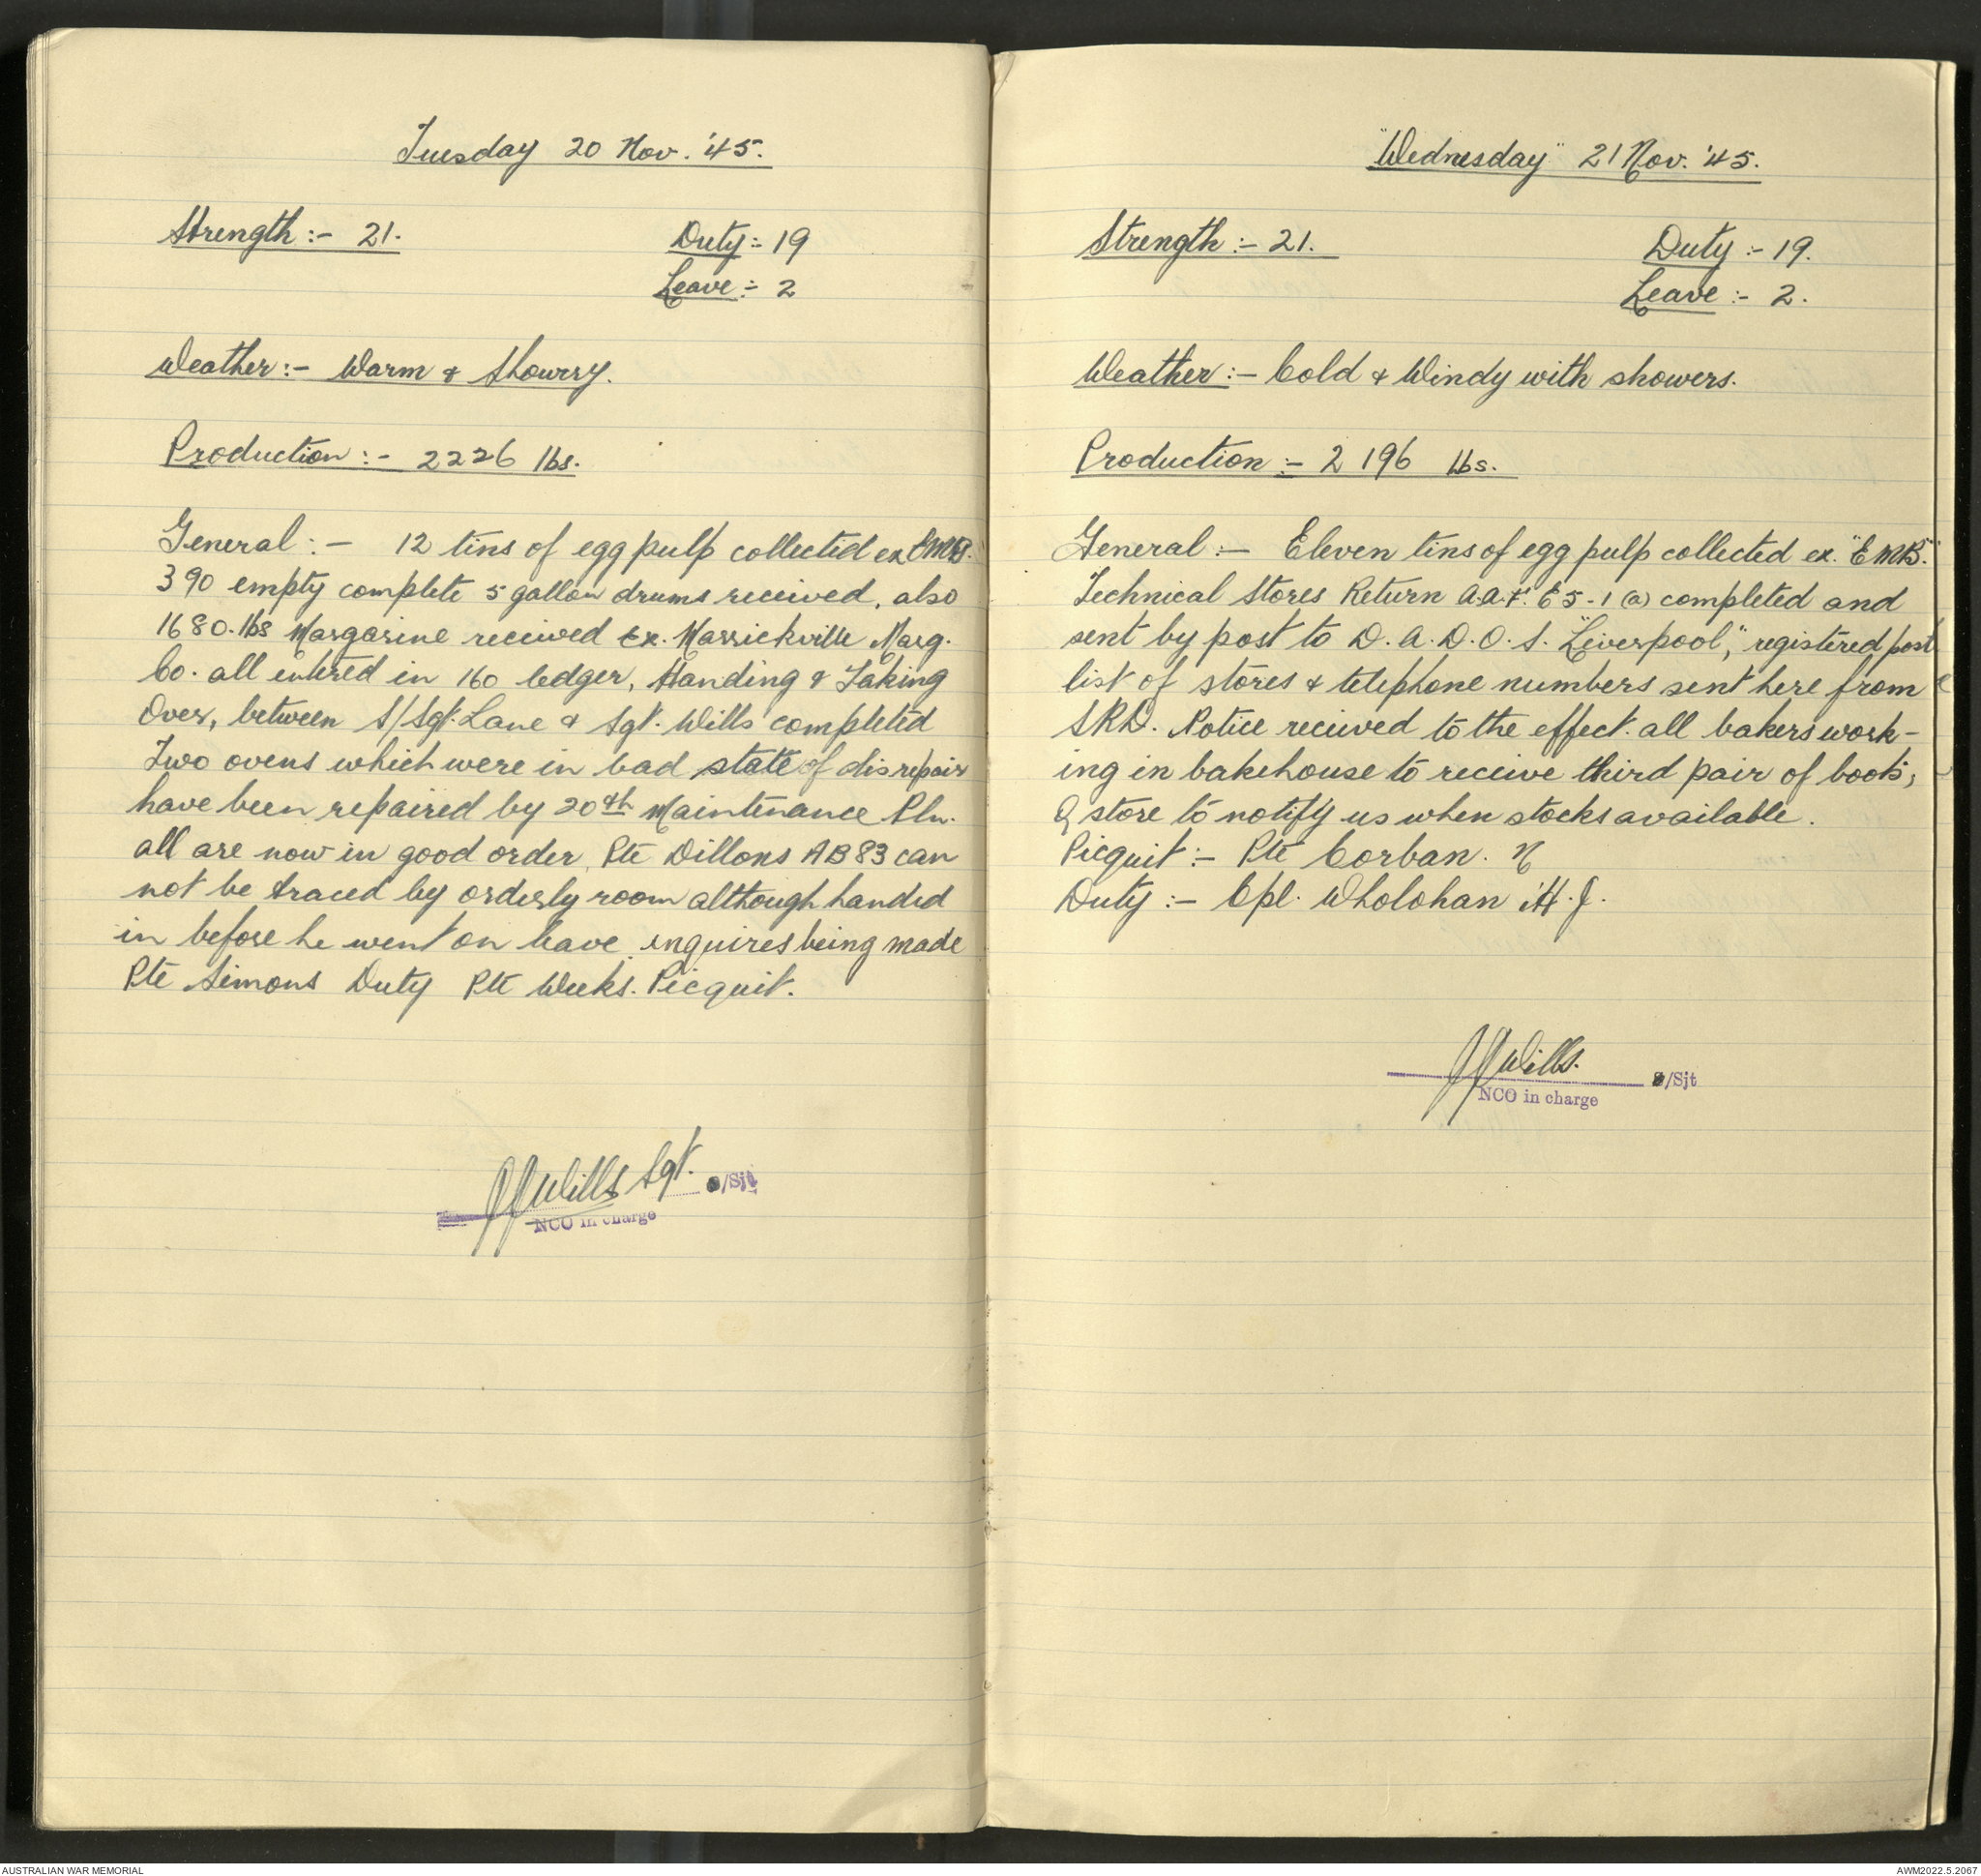 Tuesday 20 Nov. '45.
Strength:- 21.
Duty:- 19
Leave:- 2
Weather:- Warm & Showrry.
Production:- 2226 lbs.
General:- 12 tins of egg pulp collected ex EMB.
390 empty complete 5 gallon drums received, also
1680.lbs Margarine received Ex. Marrickville Marg.
Co. all entered in 160 ledger, Handing & Taking
Over, between S/Sgt. Lane & Sgt. Wills completed
Two ovens which were in bad state of disrepair
have been repaired by 20th Maintenance Pln.
all are now in good order, Pte Dillons AB83 can
not be traced by orderly room although handed
in before he went on leave. enquires being made
Pte Simons Duty Pte Weeks. Picquit.
JJWills Sgt. S/Sjt
NCO in charge
"Wednesday" 21 Nov. '45.
Strength:- 21.
Duty:- 19.
Leave:- 2.
Weather:- Cold & Windy with showers.
Production:- 2196 lbs.
General:- Eleven tins of egg pulp collected ex. "EMB."
Technical Stores Return A.A.F. E5-1(a) completed and
sent by post to D.A.D.O.S. "Liverpool", registered post
list of stores & telephone numbers sent here from
SRD. Notice received to the effect. all bakers work-
ing in bakehouse to receive third pair of boots,
Q store to notify us when stocks available.
Picquit:- Pte Corban. N
Duty:- Cpl. Wholohan H.J.
JJWills. S/Sjt
NCO in charge
AUSTRALIAN WAR MEMORIAL
AWM2022.5.2067